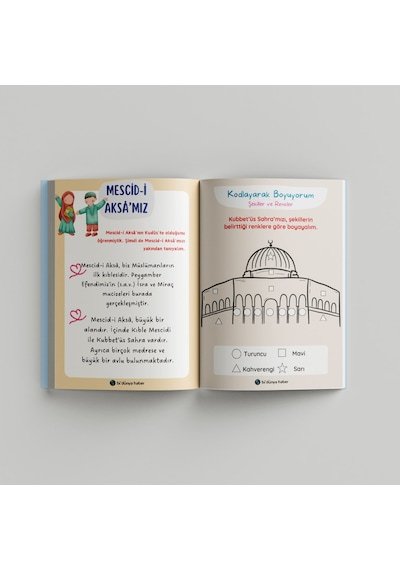 MESCİD-İ
AKSÂ'MIZ
Mescid-i Aksâ'nın Kudüs'te olduğunu
öğrenmiştik. Şimdi de Mescid-i Aksâ'mızı
yakından tanıyalım.
Mescid-i Aksâ, biz Müslümanların
ilk kıblesidir. Peygamber
Efendimiz'in (s.a.v.) İsra ve Miraç
mucizeleri burada
gerçekleşmiştir.
Mescid-i Aksâ, büyük bir
alandır. İçinde Kıble Mescidi
ile Kubbet'üs Sahra vardır.
Ayrıca birçok medrese ve
büyük bir avlu bulunmaktadır.
bi'dünya haber
Kodlayarak Boyuyorum
Şekiller ve Renkler
Kubbet'üs Sahra'mızı, şekillerin
belirttiği renklere göre boyayalım.
Turuncu
Mavi
Kahverengi
Sarı
bi'dünya haber